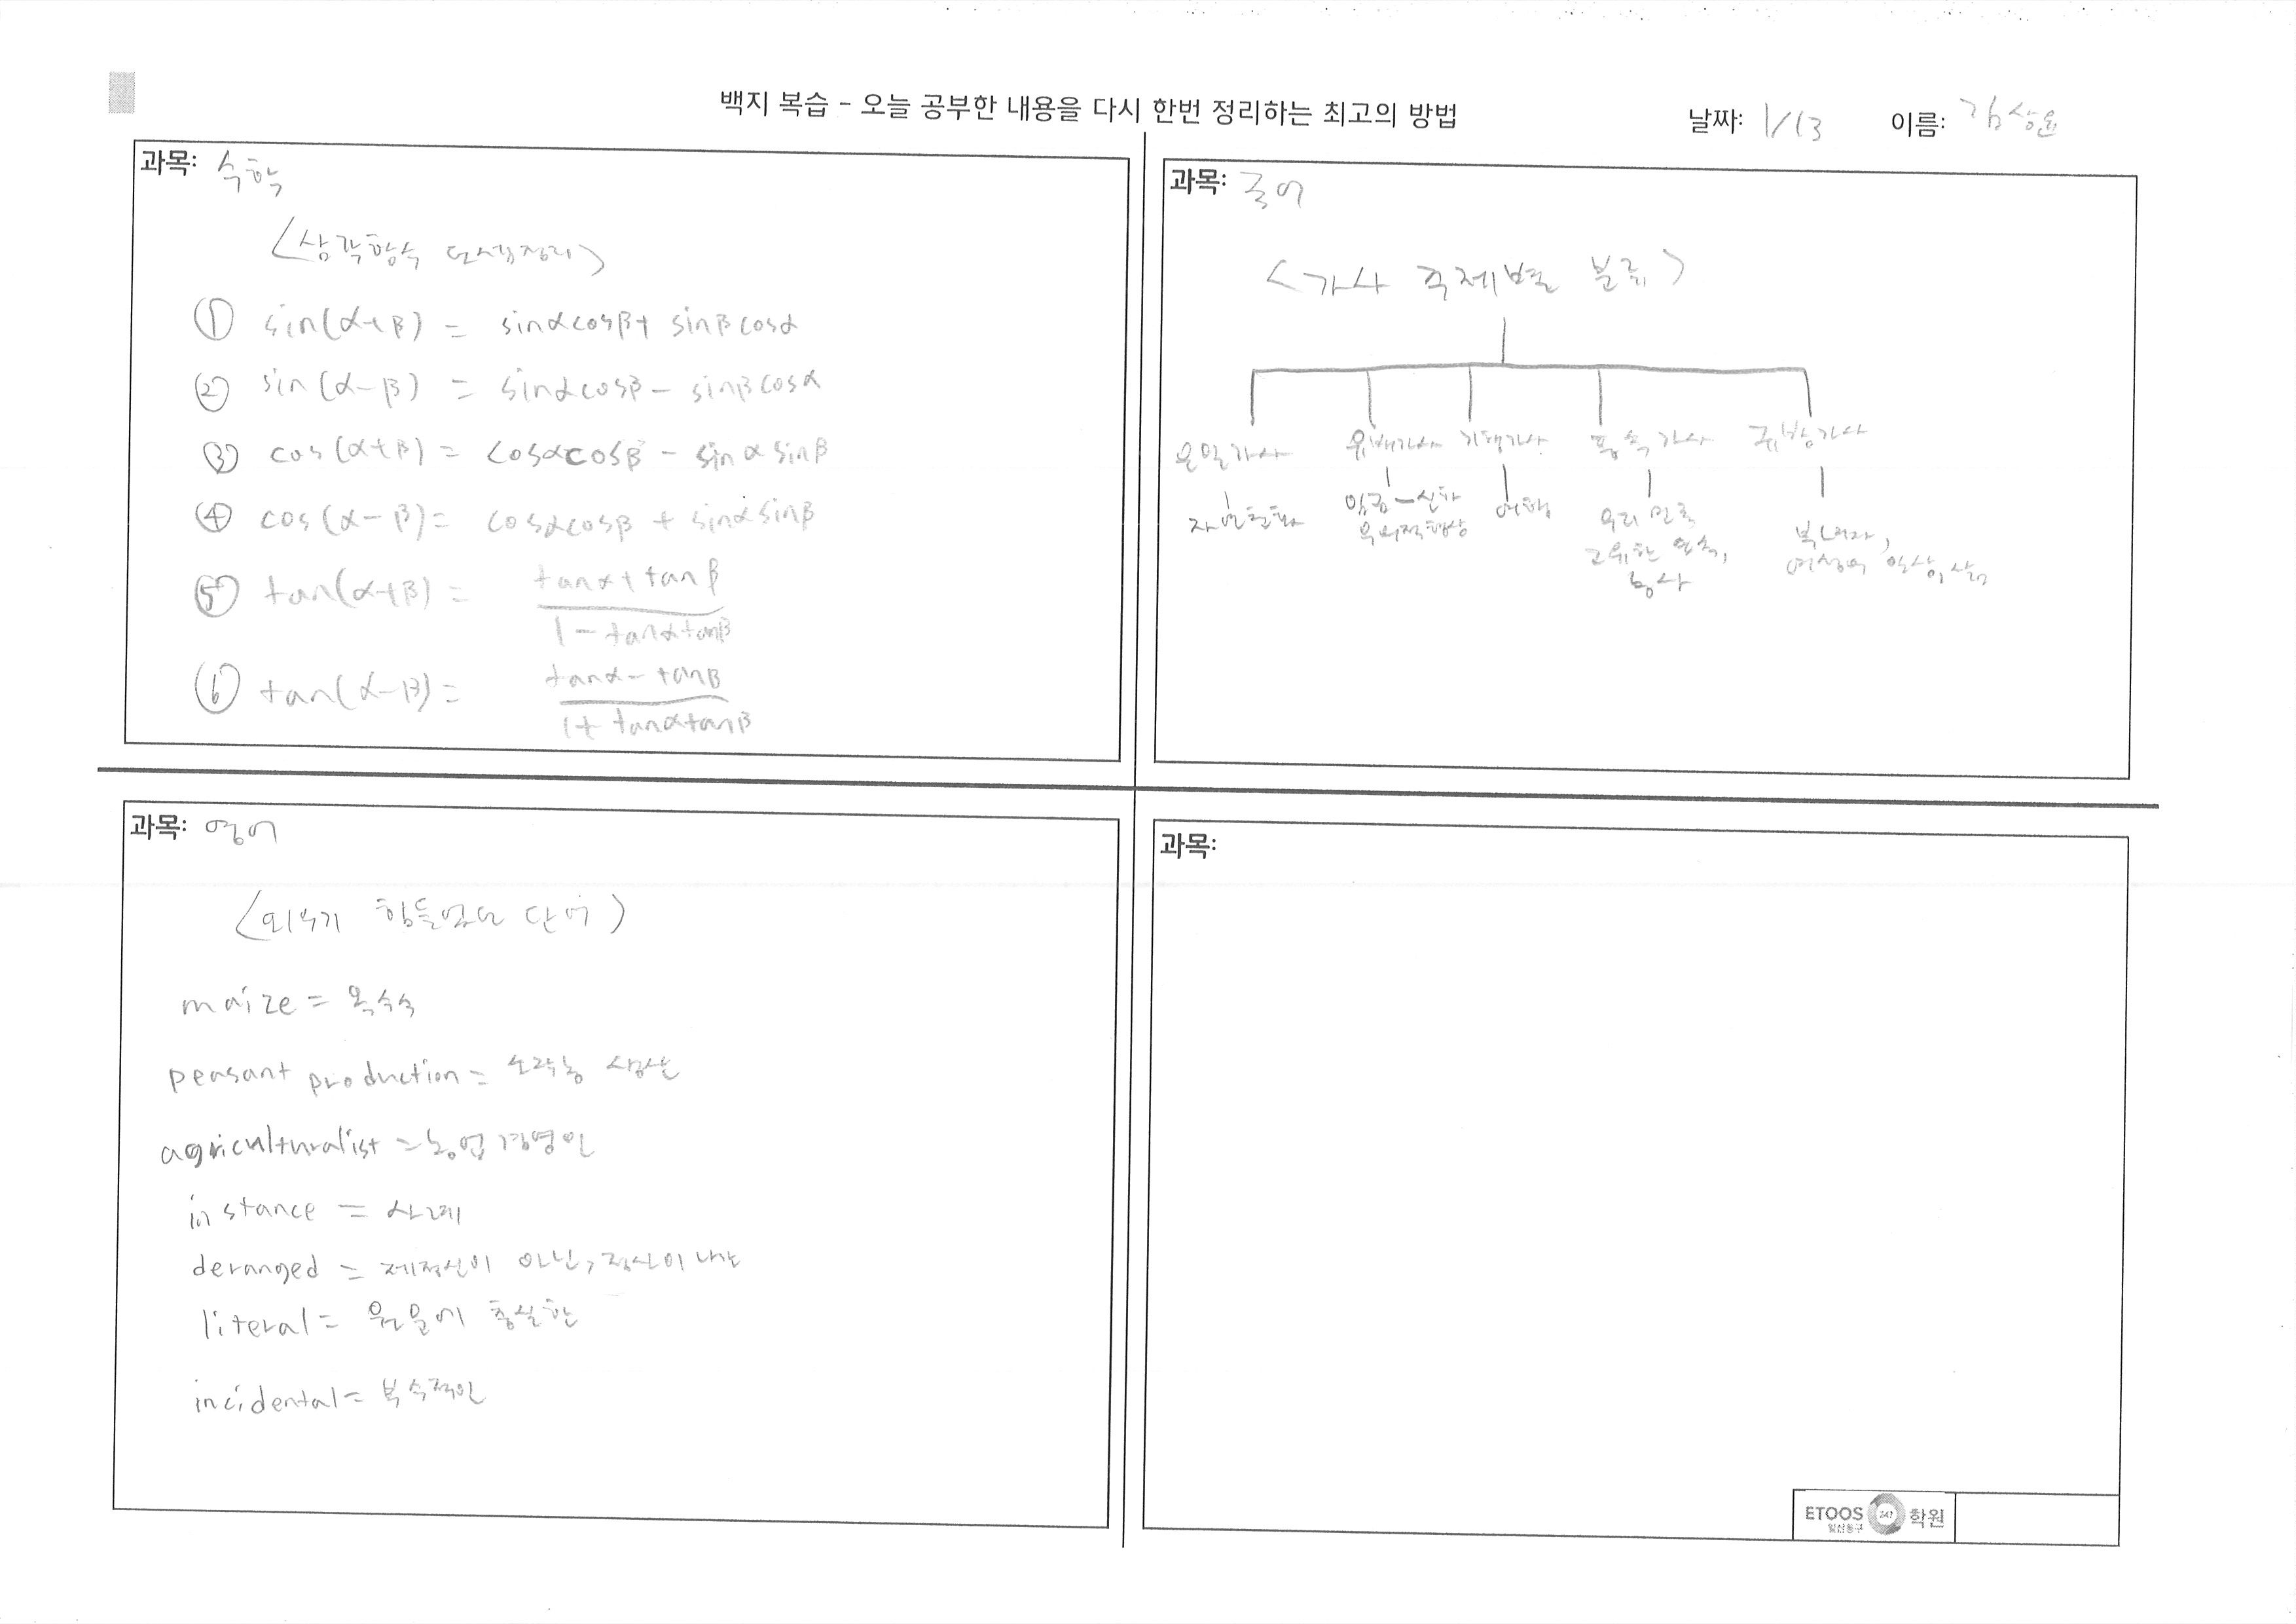 백지 복습 - 오늘 공부한 내용을 다시 한번 정리하는 최고의 방법
날짜: 1/13 이름: 김상윤
과목: 수학
<삼각함수 덧셈정리>
① sin(α+β) = sinαcosβ + sinβcosα
② sin(α-β) = sinαcosβ - sinβcosα
③ cos(α+β) = cosαcosβ - sinαsinβ
④ cos(α-β) = cosαcosβ + sinαsinβ
⑤ tan(α+β) = tanα+tanβ / 1-tanαtanβ
⑥ tan(α-β) = tanα-tanβ / 1+tanαtanβ
과목: 국어
<가사 주제별 분류>
은일가사 유배가사 기행가사 풍속가사 규방가사
자연친화
임금-신하
우의적형상
여행
우리 민족
고유한 풍속,
농사
부녀자,
여성의 일상, 삶
과목: 영어
<외우기 힘들었던 단어>
maize = 옥수수
peasant production = 소작농 생산
agriculturalist = 농업 경영인
instance = 사례
deranged = 제정신이 아닌, 정신이 나간
literal = 원문에 충실한
incidental = 부수적인
과목:
ETOOS 247 학원
일산동구